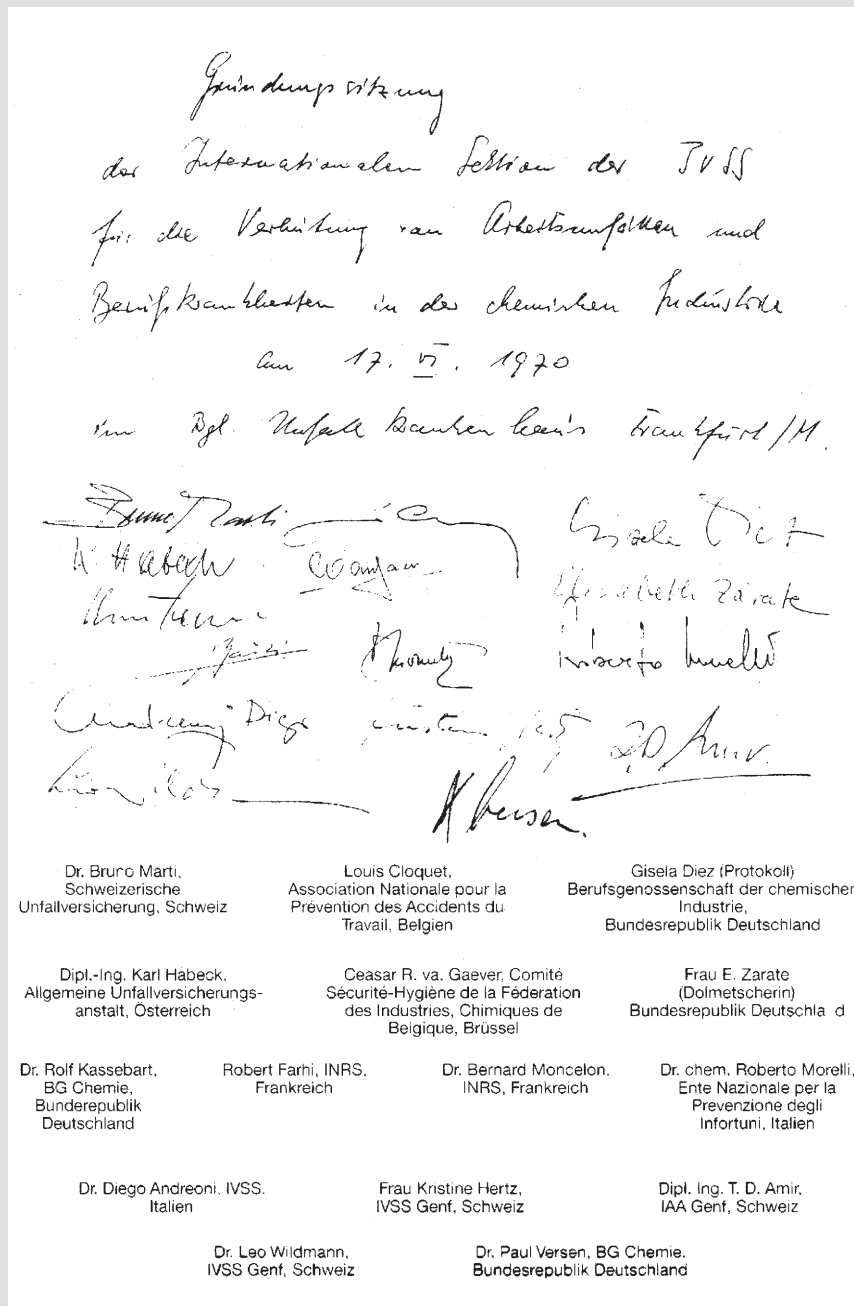 Gründungssitzung
der Internationalen Sektion der IVSS
für die Verhütung von Arbeitsunfällen und
Berufskrankheiten in der chemischen Industrie
am 17. VI. 1970
im Bgl. Unfallkrankenhaus Frankfurt/M.
Bruno Marti
Gisela Diez
K. Habeck
Elisabeth Zárate
Roberto Morelli
Andreoni Diego
K Versen.
Dr. Bruno Marti,
Schweizerische
Unfallversicherung, Schweiz
Louis Cloquet,
Association Nationale pour la
Prévention des Accidents du
Travail, Belgien
Gisela Diez (Protokoll)
Berufsgenossenschaft der chemischen
Industrie,
Bundesrepublik Deutschland
Dipl.-Ing. Karl Habeck,
Allgemeine Unfallversicherungs-
anstalt, Österreich
Ceasar R. va. Gaever, Comité
Sécurité-Hygiène de la Féderation
des Industries, Chimiques de
Beigique, Brüssel
Frau E. Zarate
(Dolmetscherin)
Bundesrepublik Deutschla d
Dr. Rolf Kassebart,
BG Chemie,
Bunderepublik
Deutschland
Robert Farhi, INRS,
Frankreich
Dr. Bernard Moncelon,
INRS, Frankreich
Dr. chem. Roberto Morelli,
Ente Nazionale per la
Prevenzione degli
Infortuni, Italien
Dr. Diego Andreoni, IVSS.
Italien
Frau Kristine Hertz,
IVSS Genf, Schweiz
Dipl. Ing. T. D. Amir,
IAA Genf, Schweiz
Dr. Leo Wildmann,
IVSS Genf, Schweiz
Dr. Paul Versen, BG Chemie.
Bundesrepublik Deutschland